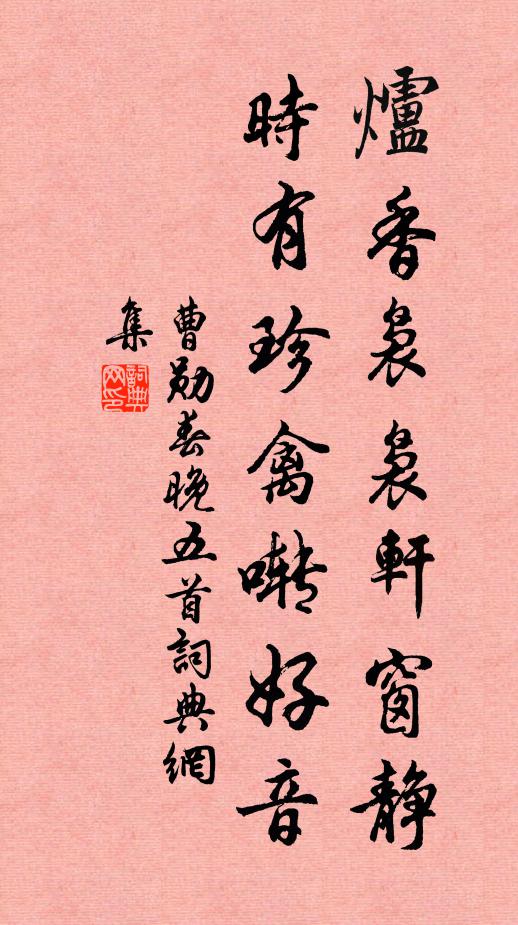 爐香裊裊軒窗靜
時有珍禽囀好音
曹勛春晚五首詞典網
集
詞典網印